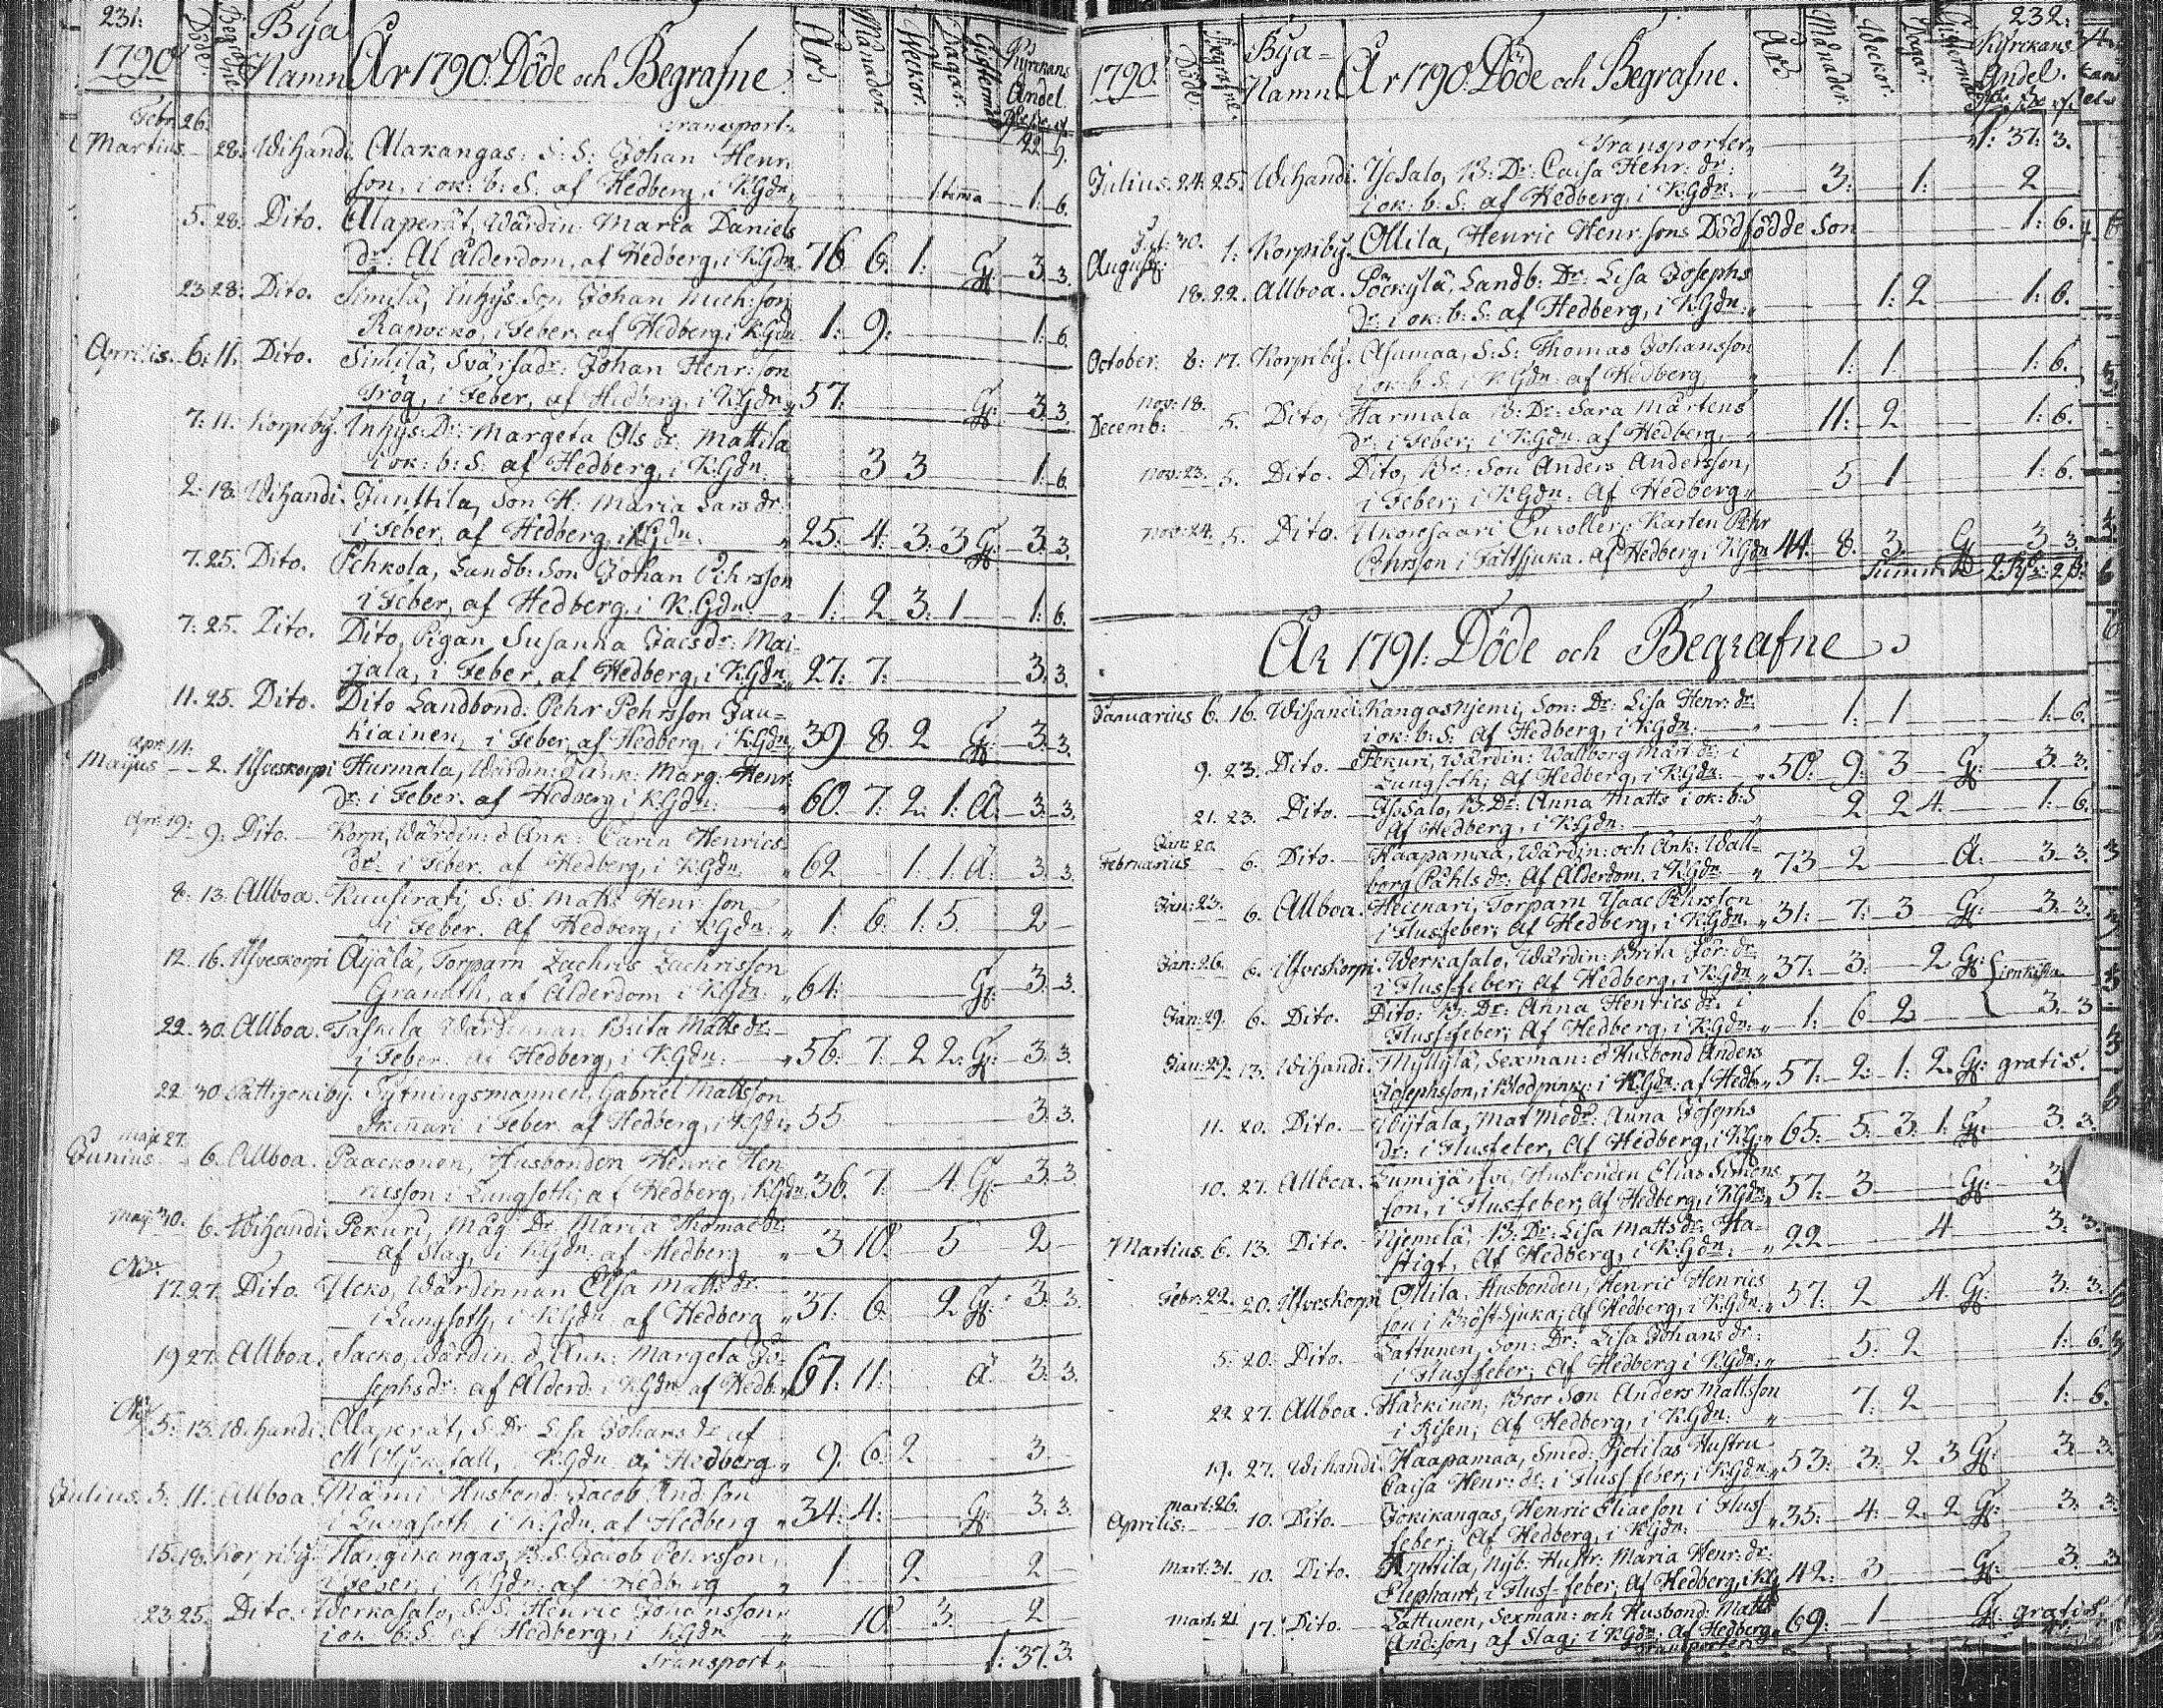 231.
1790 Döde. Begrafne Bya Namn År 1790. Döde och Begrafne. År Månader. Weckor. Dagar. Kyrckans Andel.
Febr. 26. Transport. 22 9.
Martius. 28. Wihandi. Alakangas: S: S: Johan Henr:
son, i ok: b: S: af Hedberg, i K.Gdn. 1 tima 1. 6.
5. 28. Dito. Alaperät, Wärdin: Maria Daniels
dr: Af Ålderdom, af Hedberg, i K.Gdn. 76 6. 1. G. 3. 3.
23 28. Dito. Similä, Inhys: Son Johan Mich:son
i Feber, af Hedberg, i K.Gdn. 1. 9. 1. 6.
Aprilis. 6. 11. Dito. Similä, Svärfadr: Johan Henr:son
Trög, i Feber, af Hedberg, i K.Gdn. 57. G. 3. 3.
7. 11. Korpiby. Inhys: Dr: Margeta Ols dr: Mattila
i ok: b: S: af Hedberg, i K.Gdn. 3 3 1. 6.
2. 18. Wihandi. Junttila, Son H: Maria Lars dr:
i Feber, af Hedberg, i K.Gdn. 25. 4. 3. 3 G. 3. 3.
7. 25. Dito. Pehkola, Landb: Son Johan Pehrsson
i Feber, af Hedberg, i K.Gdn. 1. 2 3. 1 1. 6.
7. 25. Dito. Dito, Pigan Susanna Jacs dr: Mai-
jala, i Feber, af Hedberg, i K.Gdn. 27. 7. 3. 3.
11. 25. Dito. Dito Landbond. Pehr Pehrsson Jau-
kiainen, i Feber, af Hedberg, i K.Gdn. 39 8. 2 G. 3. 3.
Apr. 14.
Majus 2. Ulfveskorpi Hurmala, Wärdin: Enk: Marg. Henr:
dr: i Feber. af Hedberg i K.Gdn. 60. 7. 2. 1. Ä. 3. 3.
Apr. 19. 9. Dito. Korpi, Wärdin: Enk: Carin Henrics
dr: i Feber. af Hedberg, i K.Gdn. 62 1. 1. Ä. 3. 3.
8. 13. Allboa. S: S: Matts Henr: son
i Feber. af Hedberg, i K.Gdn. 1. 6. 1. 5. 2
12 16. Ulfveskorpi Äijälä, Torparn Zachris Zachrisson
Granath, af Ålderdom i K.Gdn. 64. G. 3. 3.
22. 30. Allboa. Taskila Wärdinnan Brita Matts dr:
i Feber. af Hedberg, i K.Gdn. 56. 7. 2 2. G. 3. 3.
22 30 Pattijokiby. Sytningsmannen, Gabriel Mattsson
i Feber. af Hedberg, i K.Gdn. 55 3. 3.
Maji 27.
Junius. 6. Allboa. Paackonen, Husbonden Henric Hen
ricsson i Lungsoth; af Hedberg, i K.Gdn. 36. 7. 4. G. 3. 3
Maji 30. 6. Wihandi. Pekuri, Måg: Dr: Maria Thomae dr:
af Slag, i K.Gdn. af Hedberg 3 10. 5 2
17. 27. Dito. Ucko, Wärdinnan Elsa Matts dr:
i Lungsoth, i K.Gdn. af Hedberg 37. 6. 2 G. 3. 3.
19 27. Allboa. Sacko, Wärdin: Enk: Margeta Jo-
sephs dr: af Ålderd. i K.Gdn af Hedb. 67. 11. Ä 3. 3.
5. 13. Wihandi. Alaperät, S. Dr Lisa Johans dr af
Olycksfall, i K.Gdn. af Hedberg 9. 6. 2 3
Julius. 3. 11. Allboa. Husbond. Jacob And:son
i Lungsoth i K.Gdn. af Hedberg 34. 4. G. 3. 3.
15. 18. Korpiby. Hangikangas, B. S. Jacob Pehrsson,
i Feber, i K.Gdn. af Hedberg 1 2 2
23. 25. Dito. Werkasalo, S. S. Henric Johansson
i ok: b: S. af Hedberg, i K.Gdn 10. 3. 2
Transport. 1. 37. 3.
232.
1790. Döde. Begrafne. Bya-Namn År 1790. Döde och Begrafne. År Månader. Weckor. Dagar. Kyrckans Andel.
Transporter 1. 37. 3.
Julius. 24. 25. Wihandi. Ylösalo, B: Dr: Caisa Henr: dr:
i ok: b: S: af Hedberg, i K.Gdn. 3. 1. 2
Jul. 30.
August. 1. Korpiby. Ollila, Henric Henr:sons Dödfödde Son 1. 6.
18. 22. Allboa. Landb: Dr: Lisa Josephs
dr: i ok: b: S: af Hedberg, i K.Gdn. 1. 2 1. 6.
October. 8. 17. Korpiby. Asumaa, S: S: Thomas Johansson
i ok: b: S: i K.Gdn: af Hedberg 1. 1. 1. 6.
Nov: 18.
Decemb: 5. Dito, Harmala B: Dr: Sara Mårtens
dr: i Feber; i K.Gdn. af Hedberg, 11. 2 1. 6.
Nov: 23. 5. Dito. Dito, Br: Son Anders Andersson,
i Feber; i K.Gdn. Af Hedberg, 5 1 1. 6.
Nov: 24. 5. Dito. Ukonsaari Enroller: Karlen Pehr
Pehrsson i Fältsjuka. af Hedberg, i K.Gdn 44. 8. 3. G 3 3
Summa 2 R. 2 S:
År 1791. Döde och Begrafne
Januarius 6. 16. Wihandi. Kangasnjemi, Son: Dr: Lisa Henr: dr:
i ok: b: S. Af Hedberg, i K.Gdn. 1. 1 1. 6.
9. 23. Dito. Pekuri, Wärdin: Wallborg Mårt dr: i
Lungsoth; Af Hedberg, i K.Gdn. 50. 9. 3 G. 3. 3.
21. 23. Dito. Ylösalo, B: Dr: Anna Matts i ok: b: S
Af Hedberg, i K.Gdn. 2 2 4. 1. 6.
Jan: 20.
Februarius 6. Dito. Haapamaa, Wärdin: och Enk: Wall-
borg Påhls dr: Af Ålderdom. i K.Gdn. 73 2 Ä. 3. 3.
Jan: 23. 6. Allboa. Torparn Isaac Pehrsson
i Flusfeber; Af Hedberg, i K.Gdn. 31. 7. 3 G. 3. 3.
Jan: 26. 6. Ulfveskorpi. Werkasalo, Wärdin: Brita Jör: dr:
i Flussfeber; Af Hedberg, i K.Gdn. 37. 3. 2 G. i en kista
Jan: 29. 6. Dito. Dito: B: Dr: Anna Henrics dr: i
Flussfeber; Af Hedberg, i K.Gdn. 1. 6 2 3. 3
Jan: 29. 13. Wihandi. Myllylä, Sexman: Husbond Anders
Josephsson, i K.Gdn: af Hedb. 57. 2. 1. 2. G. gratis.
11. 20. Dito. Wijtala, Mat Modr: Anna Josephs
dr: i Flusfeber, Af Hedberg, i K.G. 65. 5. 3. 1. G. 3. 3.
10. 27. Allboa. Lumijärfvi, Husbonden Elias Simons
son, i Flusfeber; Af Hedberg, i K.Gdn. 57. 3. G. 3
Martius. 6. 13. Dito. Njemelä, B: Dr: Lisa Matts dr: Ha-
stigt, Af Hedberg, i K.Gdn. 22 4 3. 3.
Febr: 22. 20. Ulfveskorpi Ollila, Husbonden, Henric Henrics
son i Bröstsjuka; Af Hedberg, i K.Gdn. 57. 2 4. G. 3. 3.
5. 20. Dito. Lattunen, Son: Dr: Lisa Johans dr:
i Flussfeber; Af Hedberg i K.Gdn. 5. 2 1. 6.
22 27. Allboa. Häckinen, Bror Son Anders Mattsson
i Risen; Af Hedberg, i K.Gdn. 7. 2 1. 6.
19. 27. Wihandi. Haapamaa, Smed: Pietilas Hustru
Caisa Henr: dr: i Fluss feber; i K.Gdn. 53. 3. 2 3 G. 3. 3.
Mart: 26.
Aprilis. 10. Dito. Jokikangas, Henric Eliasson i Fluss
feber; Af Hedberg, i K.Gdn. 35. 4. 2. 2 G. 3. 3.
Mart: 31. 10. Dito. Nyb: Hustr: Maria Henr: dr:
Elephant, i Flus-feber; Af Hedberg, i K.G. 42. 3 G. 3. 3
Mart: 21 17. Dito. Lattunen, Sexman: och Husbond: Matts
And:son, af Slag; i K.Gdn. Af Hedberg 69. 1 G. gratis.
Transporter